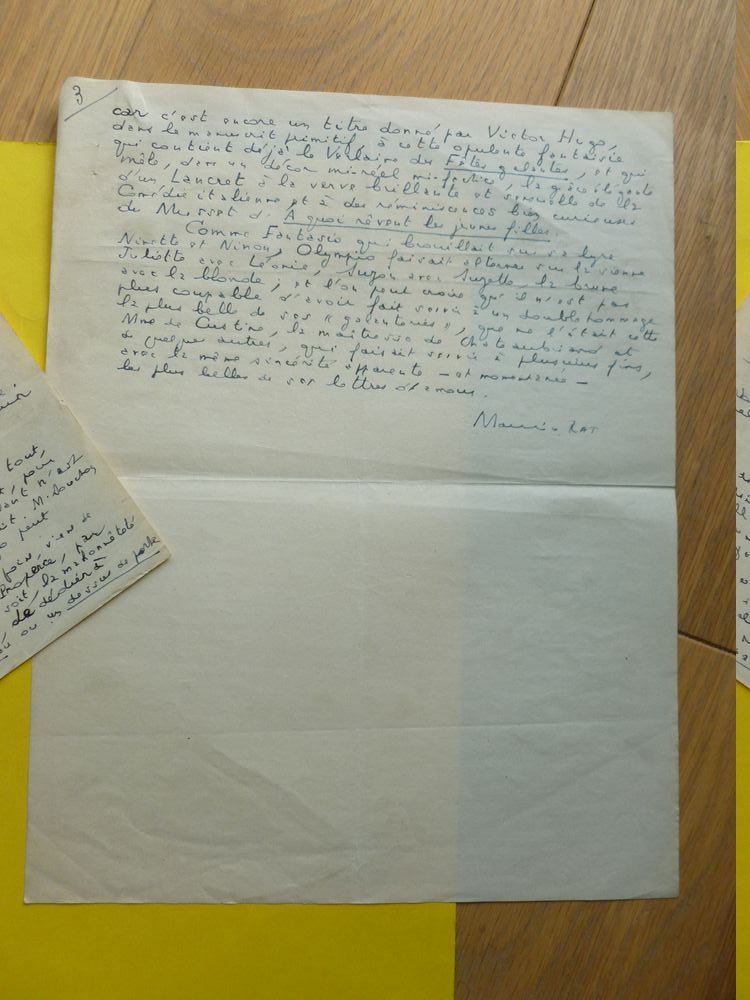 3
car c'est encore un titre donné, par Victor Hugo,
dans le manuscrit primitif, à cette opulente fantaisie
qui contient déjà le Verlaine des Fêtes galantes, et qui
mêle, dans un décor mi-réel mi-factice, la grâce élégante
d'un Lancret à la verve brillante et sensuelle de la
Comédie italienne et à des réminiscences bien curieuses
du Musset d' A quoi rêvent les jeunes filles.
Comme Fantasio qui brouillait sur sa lyre
Ninette et Ninon, Olympio faisait alterner sur la sienne
Juliette avec Léonie, Suzon avec Suzette, la brune
avec la blonde ; et l'on peut croire qu'il n'est pas
plus coupable d'avoir fait servir à un double hommage
la plus belle de ses " galanteries ", que ne l'était cette
Mme de Custine, la maîtresse de Chateaubriand et
de quelques autres, qui faisait servir à plusieurs fins,
avec la même sincérité apparente — et momentanée —
les plus belles de ses lettres d'amour.
Maurice RAT
tout,
pour
n'est
M.
peut
pour rien de
Properce, par
soit, la malhonnêteté
de dédier à
ou un dessus de porte